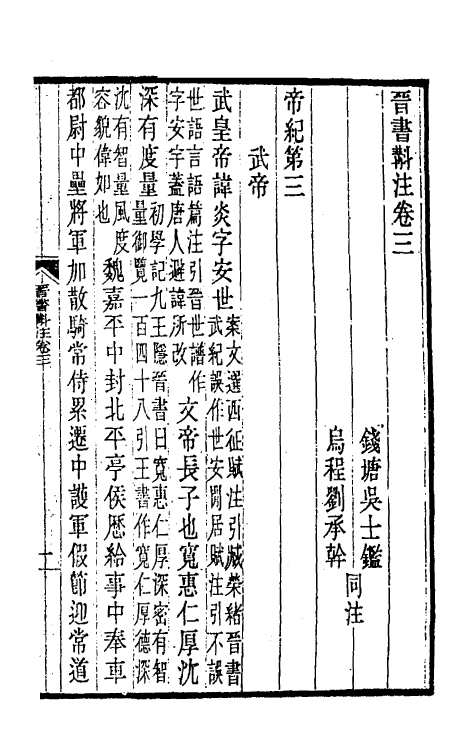 晉書斠注卷三
錢塘吳士鑑
烏程劉承幹
同注
帝紀第三
武帝
武皇帝諱炎字安世案文選西征賦注引臧榮緒晉書武紀誤作世安閒居賦注引不誤
世語言語篇注引晉世譜作字安宇蓋唐人避諱所改文帝長子也寬惠仁厚沈
深有度量初學記九王隱晉書曰寬惠仁厚深密有智量御覽一百四十八引王書作寬仁厚德深
沈有智量風度容貌偉如也魏嘉平中封北平亭侯歷給事中奉車
都尉中壘將軍加散騎常侍累遷中護軍假節迎常道
晉書斠注卷三